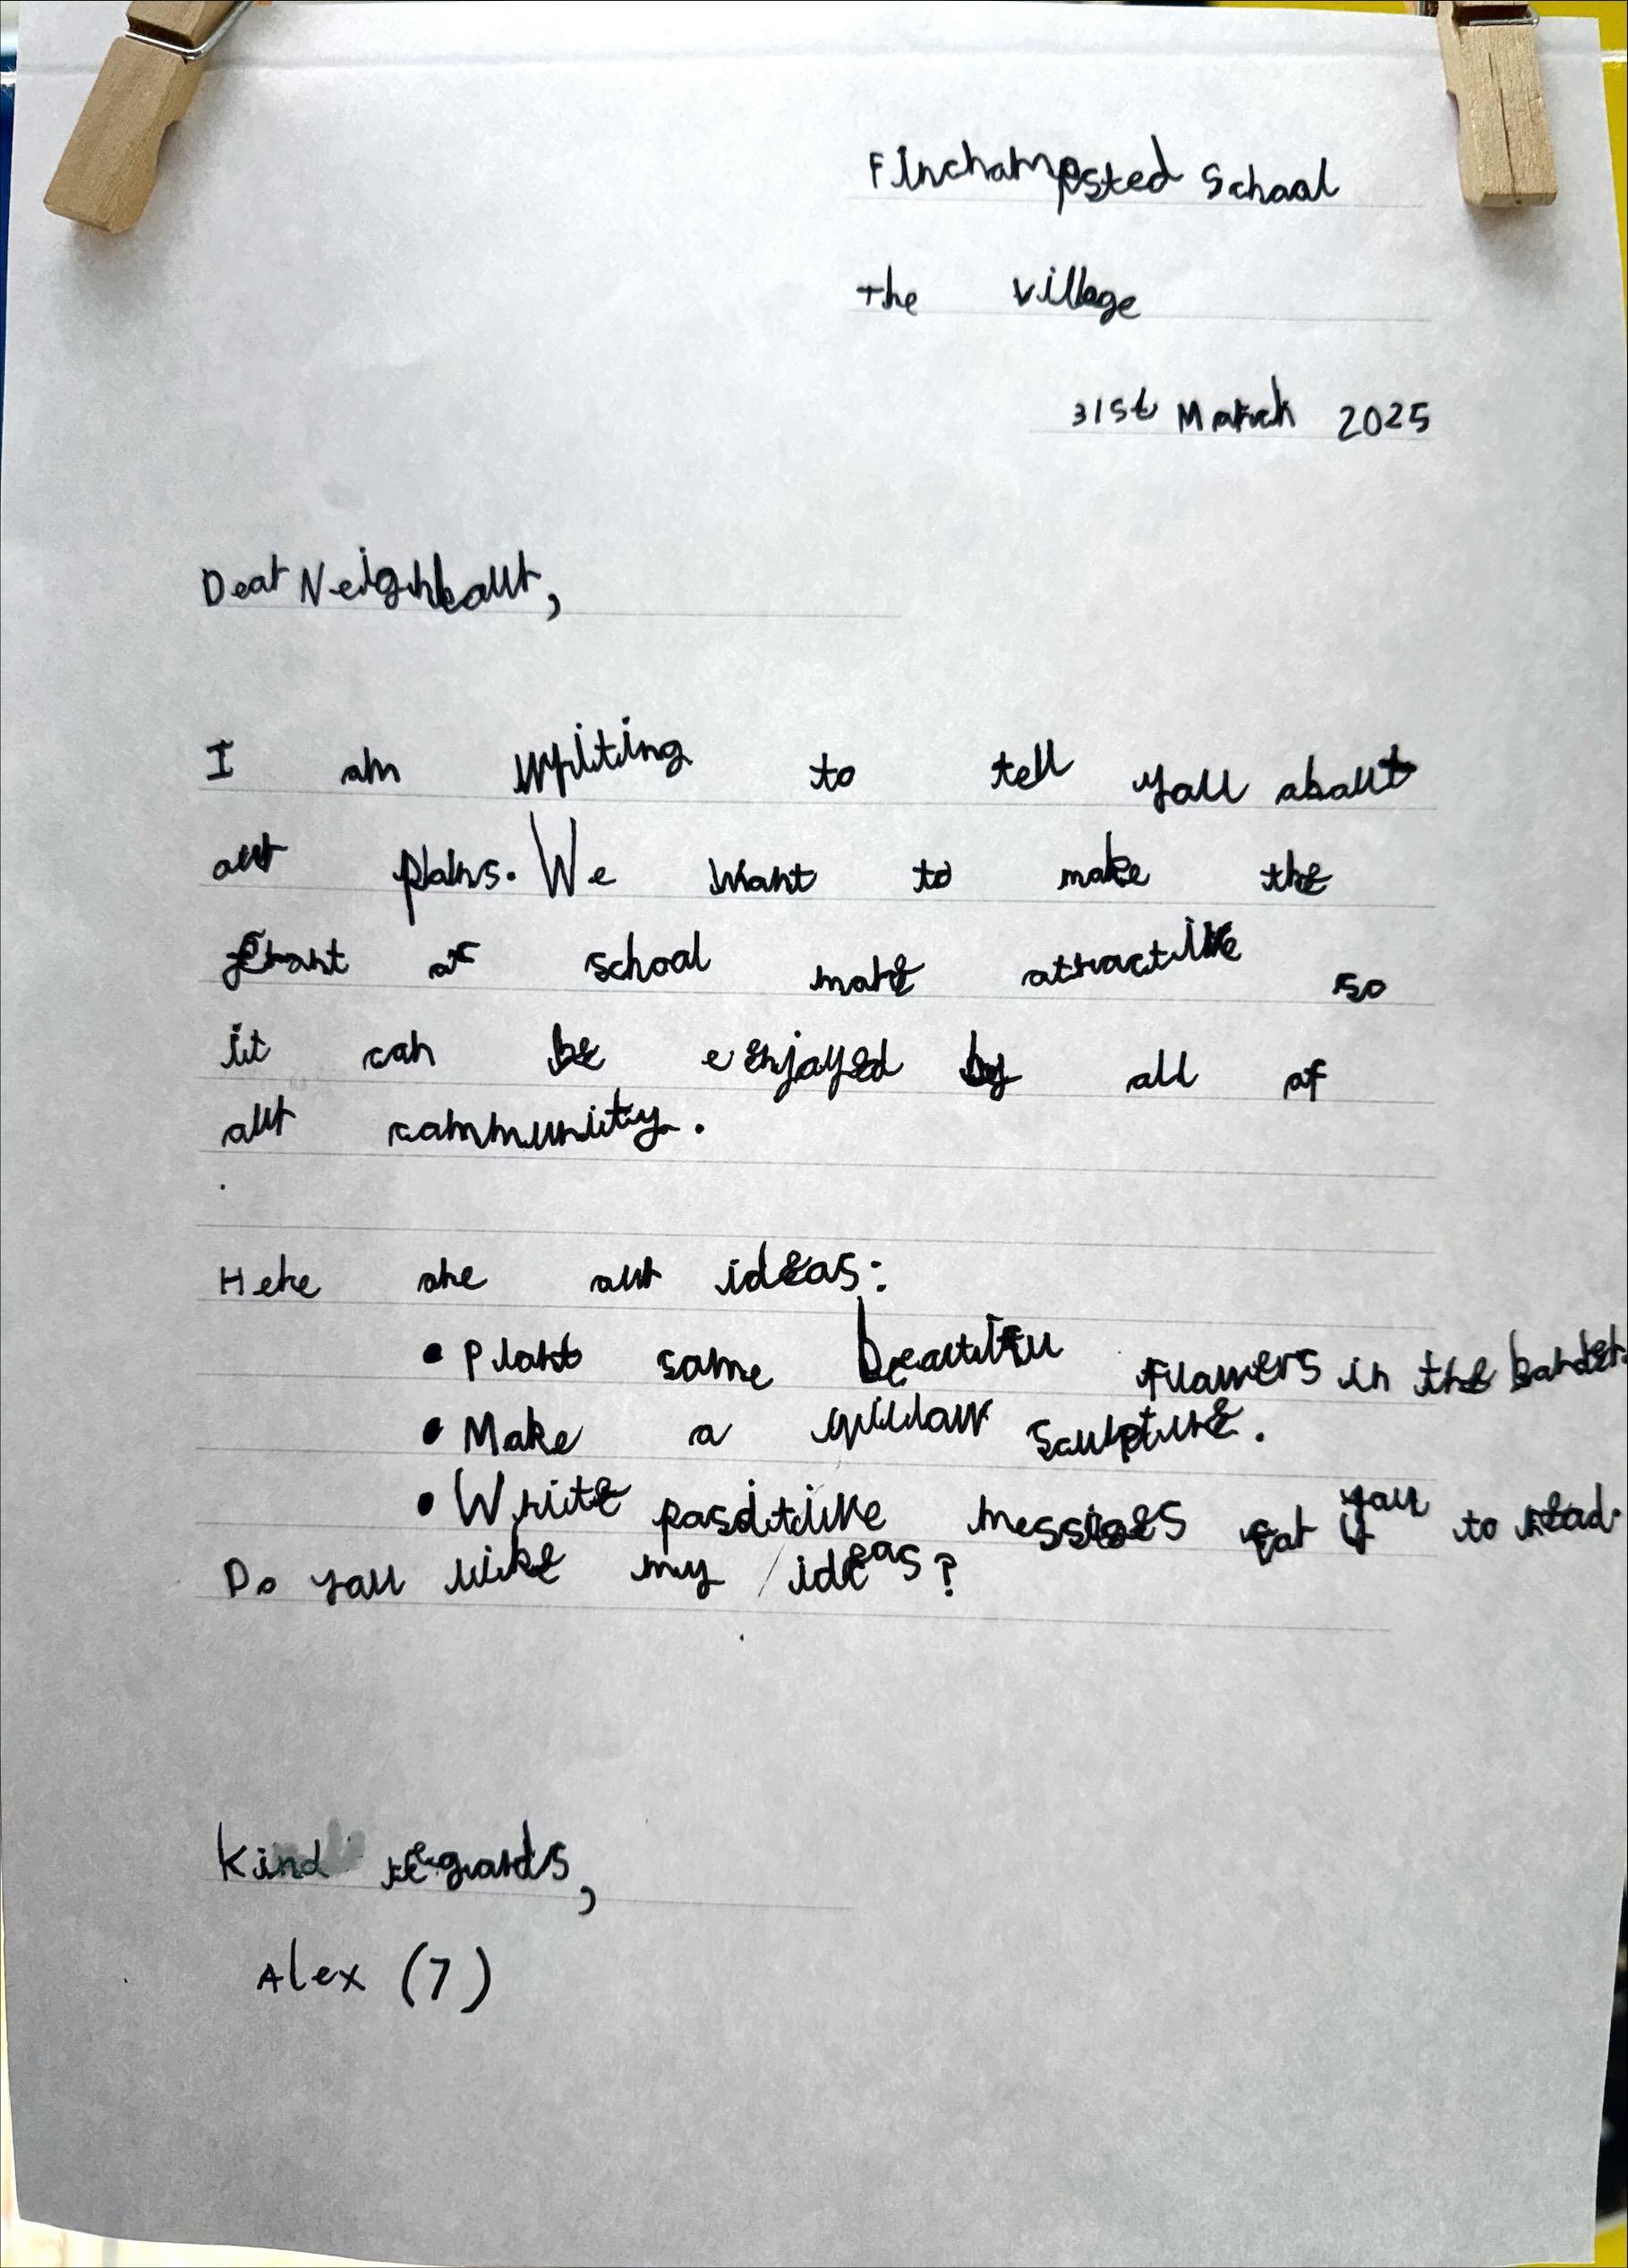 Finchampsted School
The village
31st March 2025
Dear Neighbour,
I am writing to tell you about
our plans. We want to make the
front of school more attractive so
it can be e enjoyed by all of
our community.
Here are our ideas:
• Plant some beautifu flowers in the border.
• Make a willow sculpture.
• Write positive messiges for you to read.
Do you like my ideas?
Kind regards,
Alex (7)